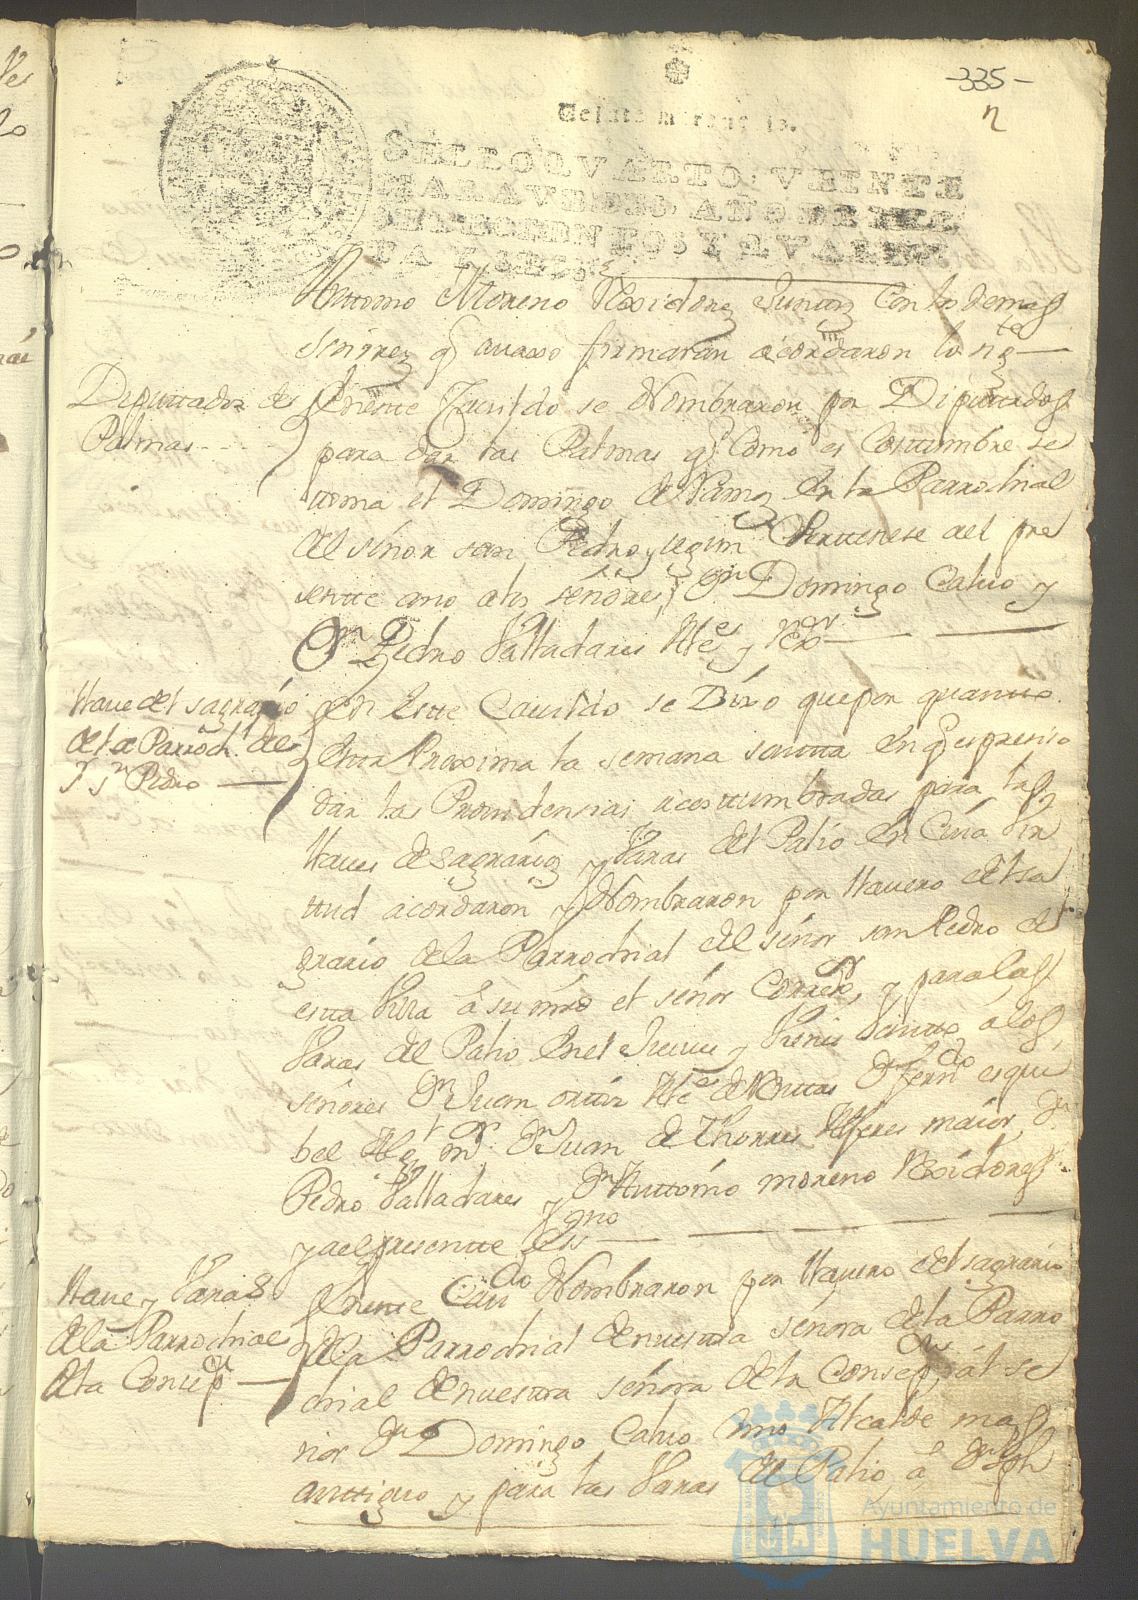 -335-
Veinte maravedis.
SELLO QVARTO, VEINTE
MARAVEDIS, AÑO DE MIL
SETECIENTOS Y QVAREN
TA Y SEIS.
Anttonio Moreno Rexidorez Junttos Con lo demas
señorez q avaxo firmaran acordaron lo sigte
Diputtados de
Palmas
En este Cavildo se Nombraron por Diputtados
para dar las Palmas q Como es Costtumbre se
ttoma el Domingo de Ramos En la Parrochial
del señor san Pedro y segun Perttenese del pre
sentte año a los señores Dn Domingo Calvo y
Dn Pedro Valladares
Llave del sagrario
de la Parroch.l de
Sr Sn Pedro
En Estte Cavildo se Dixo que por quantto
Estta Proxima la semana santta En q es presiso
dar las Providensias acosttumbradas para las
llaves de sagrarios y Varas del Palio En Cuia Vir
ttud acordaron y Nombraron por llavero del sa
grario de la Parrochial del señor san Pedro de
estta Villa â su mrd el señor Correxor, y para las
Varas del Palio En el Jueves y Viernes Santto a los
señores Dn Juan orttiz Dn Ferndo esqui
bel Dn Juan de Thorres Alferes maior, Dn
Pedro Valladares y Dn Anttonio moreno Rexidores
y a el presentte Essno
Llave y Varas
de la Parrochial
de la Consepn
En este Cavdo Nombraron por llavero del sagrario
de la Parrochial de nuestra señora de la Parro
chial de nuestra señora de la Consepn al se
ñor Dn Domingo Calvo Alcalde mas
anttiguo y para las Varas de Palio, â Dn Jph
Ayuntamiento de
HUELVA